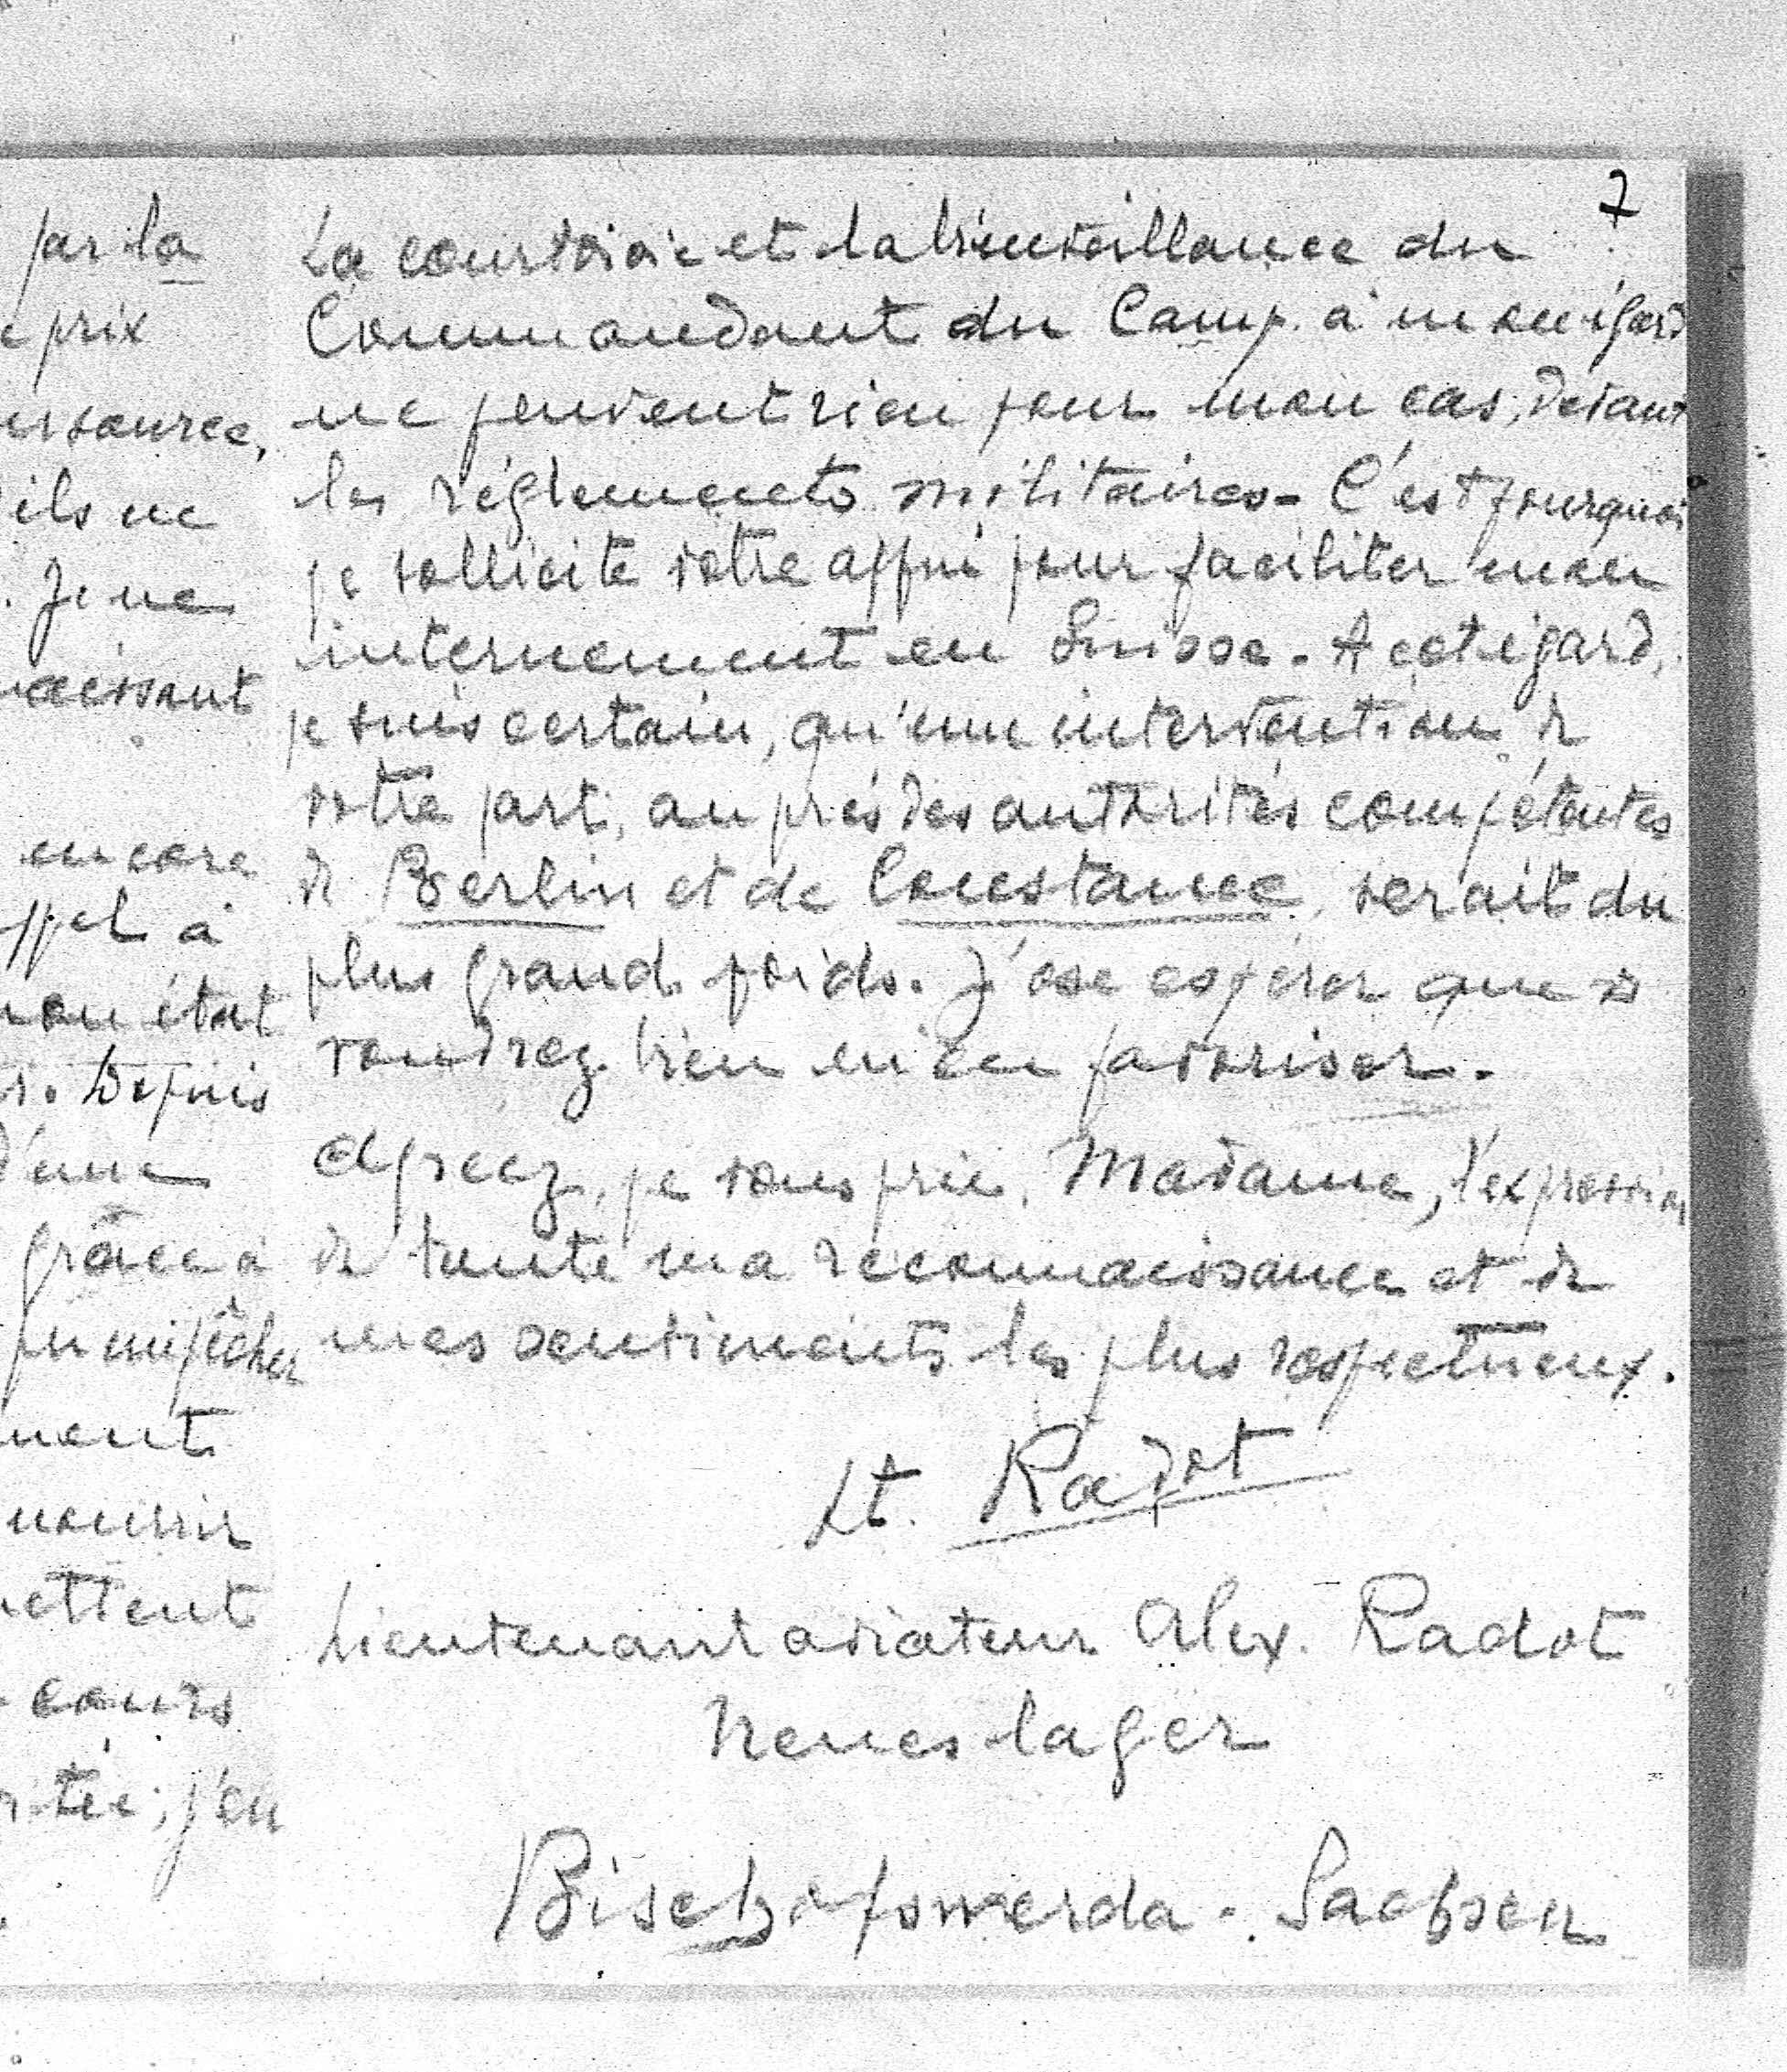 par la
prix
ils ne
Je ne
encore
à
mon état
Depuis
d'une
grâce à
empêcher
nourrir
cours
j'en
7
La courtoisie et la bienveillance du
Commandant du Camp. à mon égard
ne peuvent rien pour mon cas, devant
les réglements militaires - C'est pourquoi
je sollicite votre appui pour faciliter mon
internement en Suisse. A cet égard,
je suis certain, qu'une intervention de
votre part, auprès des autorités compétentes
de Berlin et de Constance, serait du
plus grand poids. J'ose espérer que vs
voudrez bien m'en favoriser.
Agreez, je vous prie, Madame, l'expression
de toute ma reconnaissance et de
mes sentiments les plus respectueux.
Lt. Radot
Lieutenant aviateur Alex. Radot
Neues lager
Bischofswerda - Sachsen